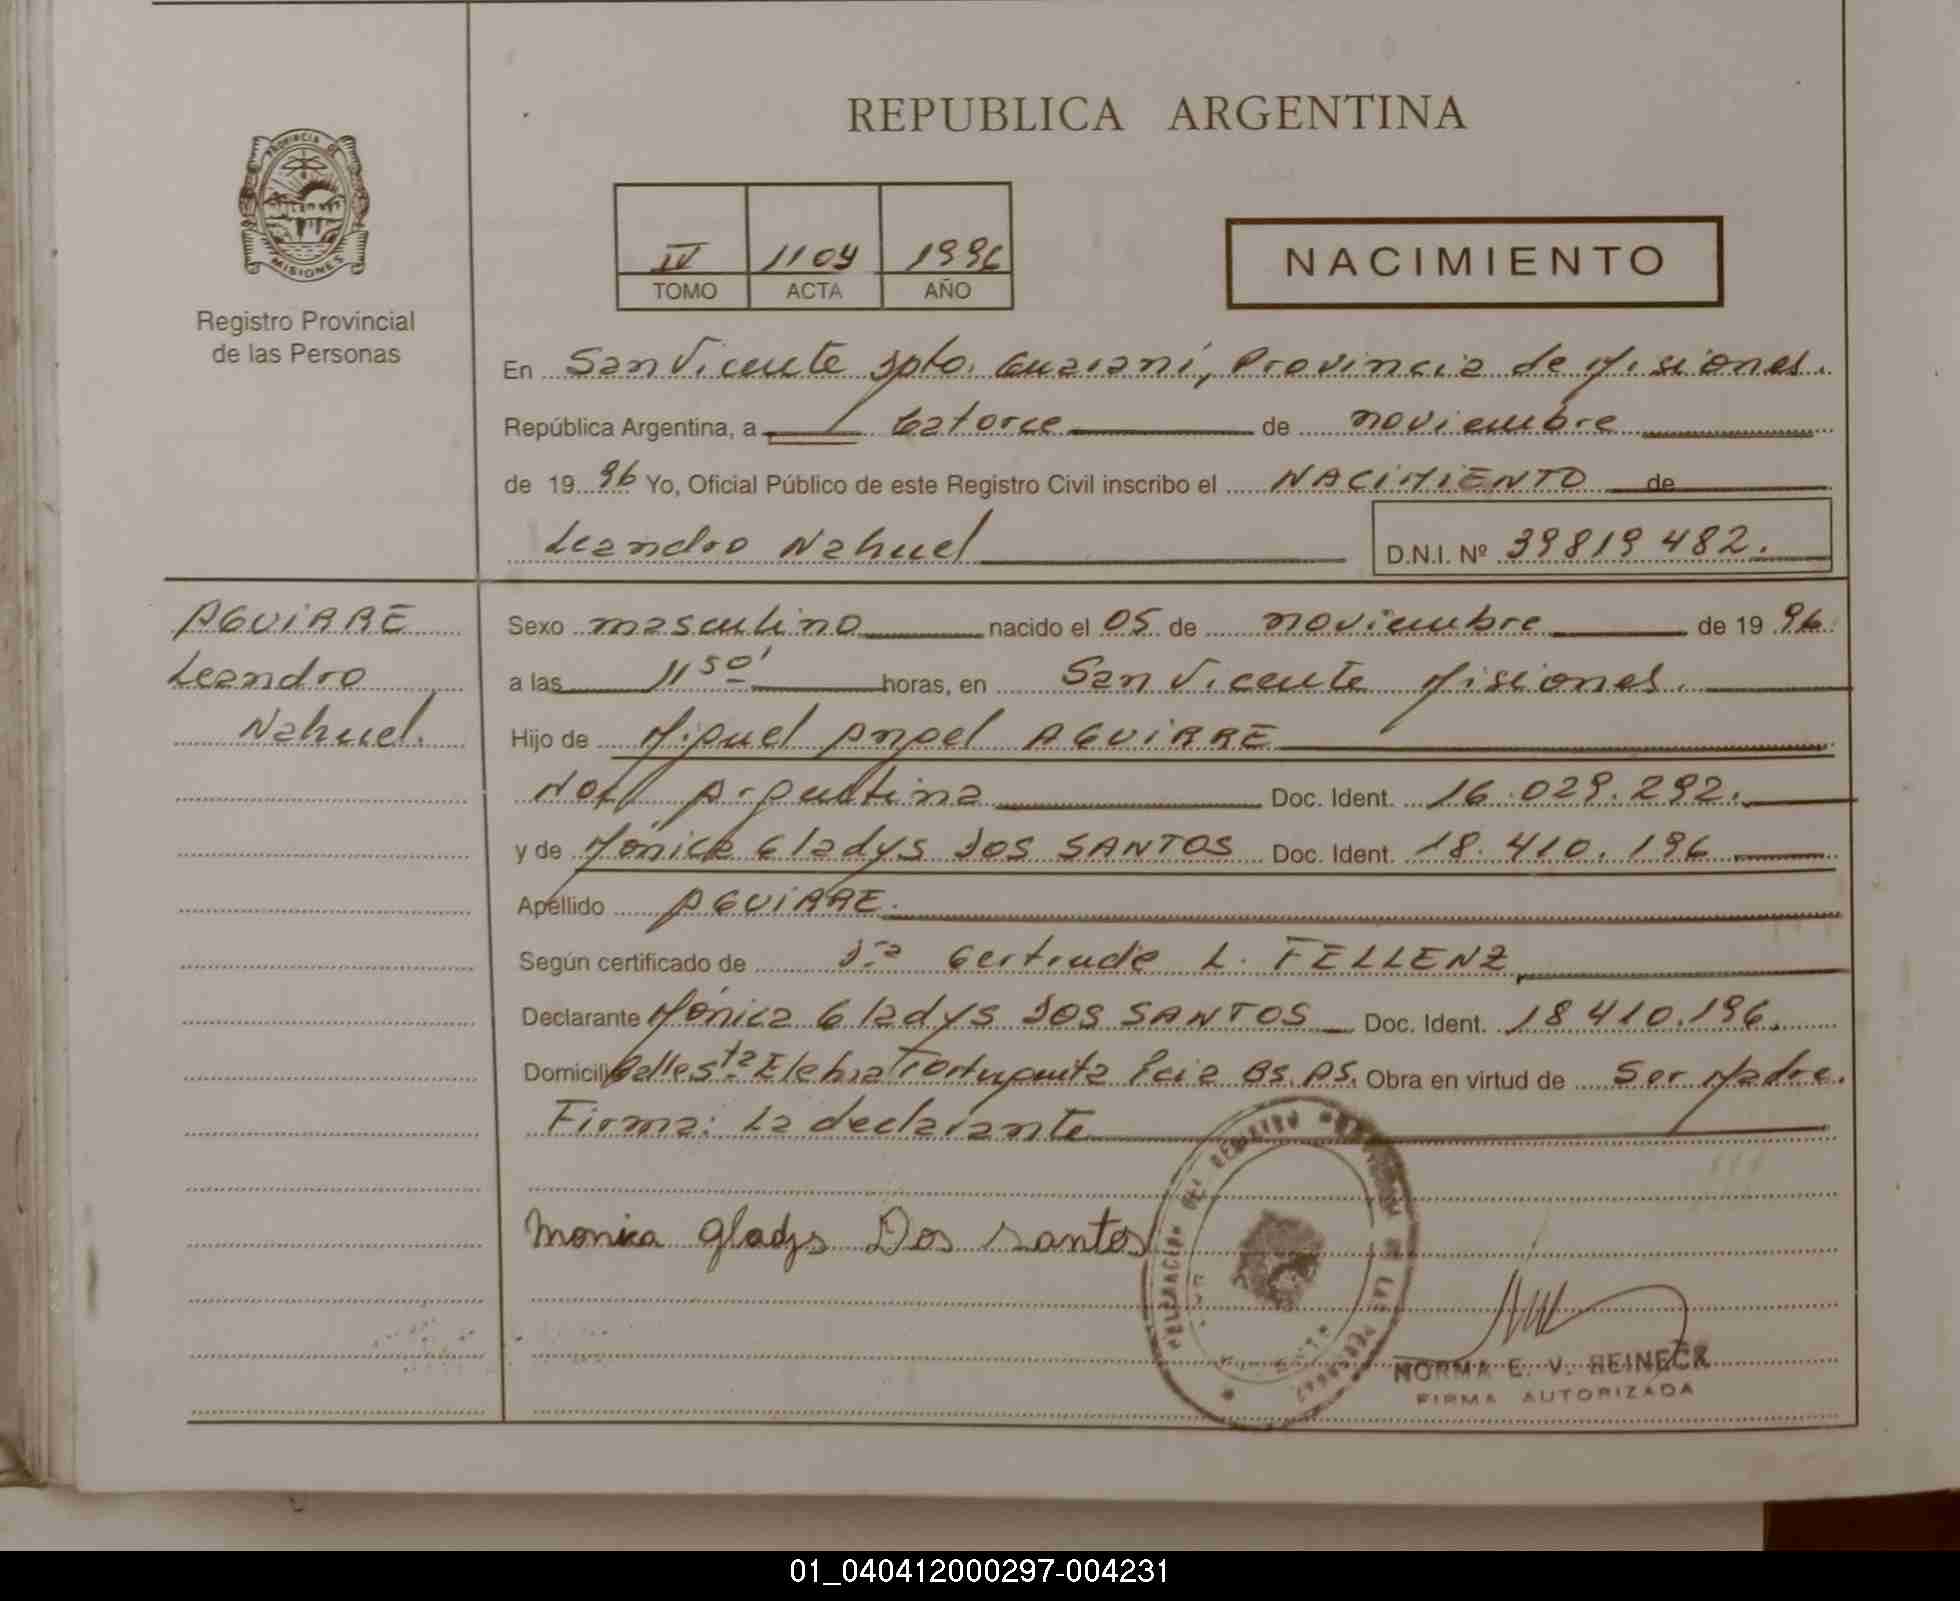 REPUBLICA ARGENTINA
PROVINCIA DE
MISIONES
Registro Provincial
de las Personas
IV 1104 1996
TOMO ACTA AÑO
NACIMIENTO
En San Vicente Dpto. Guarani, Provincia de Misiones.
República Argentina, a Catorce de noviembre
de 1996 Yo, Oficial Público de este Registro Civil inscribo el NACIMIENTO de
Leandro Nahuel D.N.I. Nº 39819482.
AGUIRRE
Leandro
Nahuel.
Sexo masculino nacido el 05 de noviembre de 1996
a las 11 50' horas, en San Vicente Misiones.
Hijo de Miguel Angel AGUIRRE
Argentina Doc. Ident. 16.029.292.
y de Mónica Gladys DOS SANTOS Doc. Ident. 18.410.196
Apellido AGUIRRE.
Según certificado de Dra Gertrude L. FELLENZ
Declarante Mónica Gladys DOS SANTOS Doc. Ident. 18.410.196.
Domicilio Calle Sta Elena Tortuguita Pcia Bs. As. Obra en virtud de Ser Madre.
Firma: La declarante
Monica Gladys Dos Santos
DELEGACION DEL REGISTRO PROVINCIAL DE LAS PERSONAS
NORMA E. V. REINECK
FIRMA AUTORIZADA
01_040412000297-004231